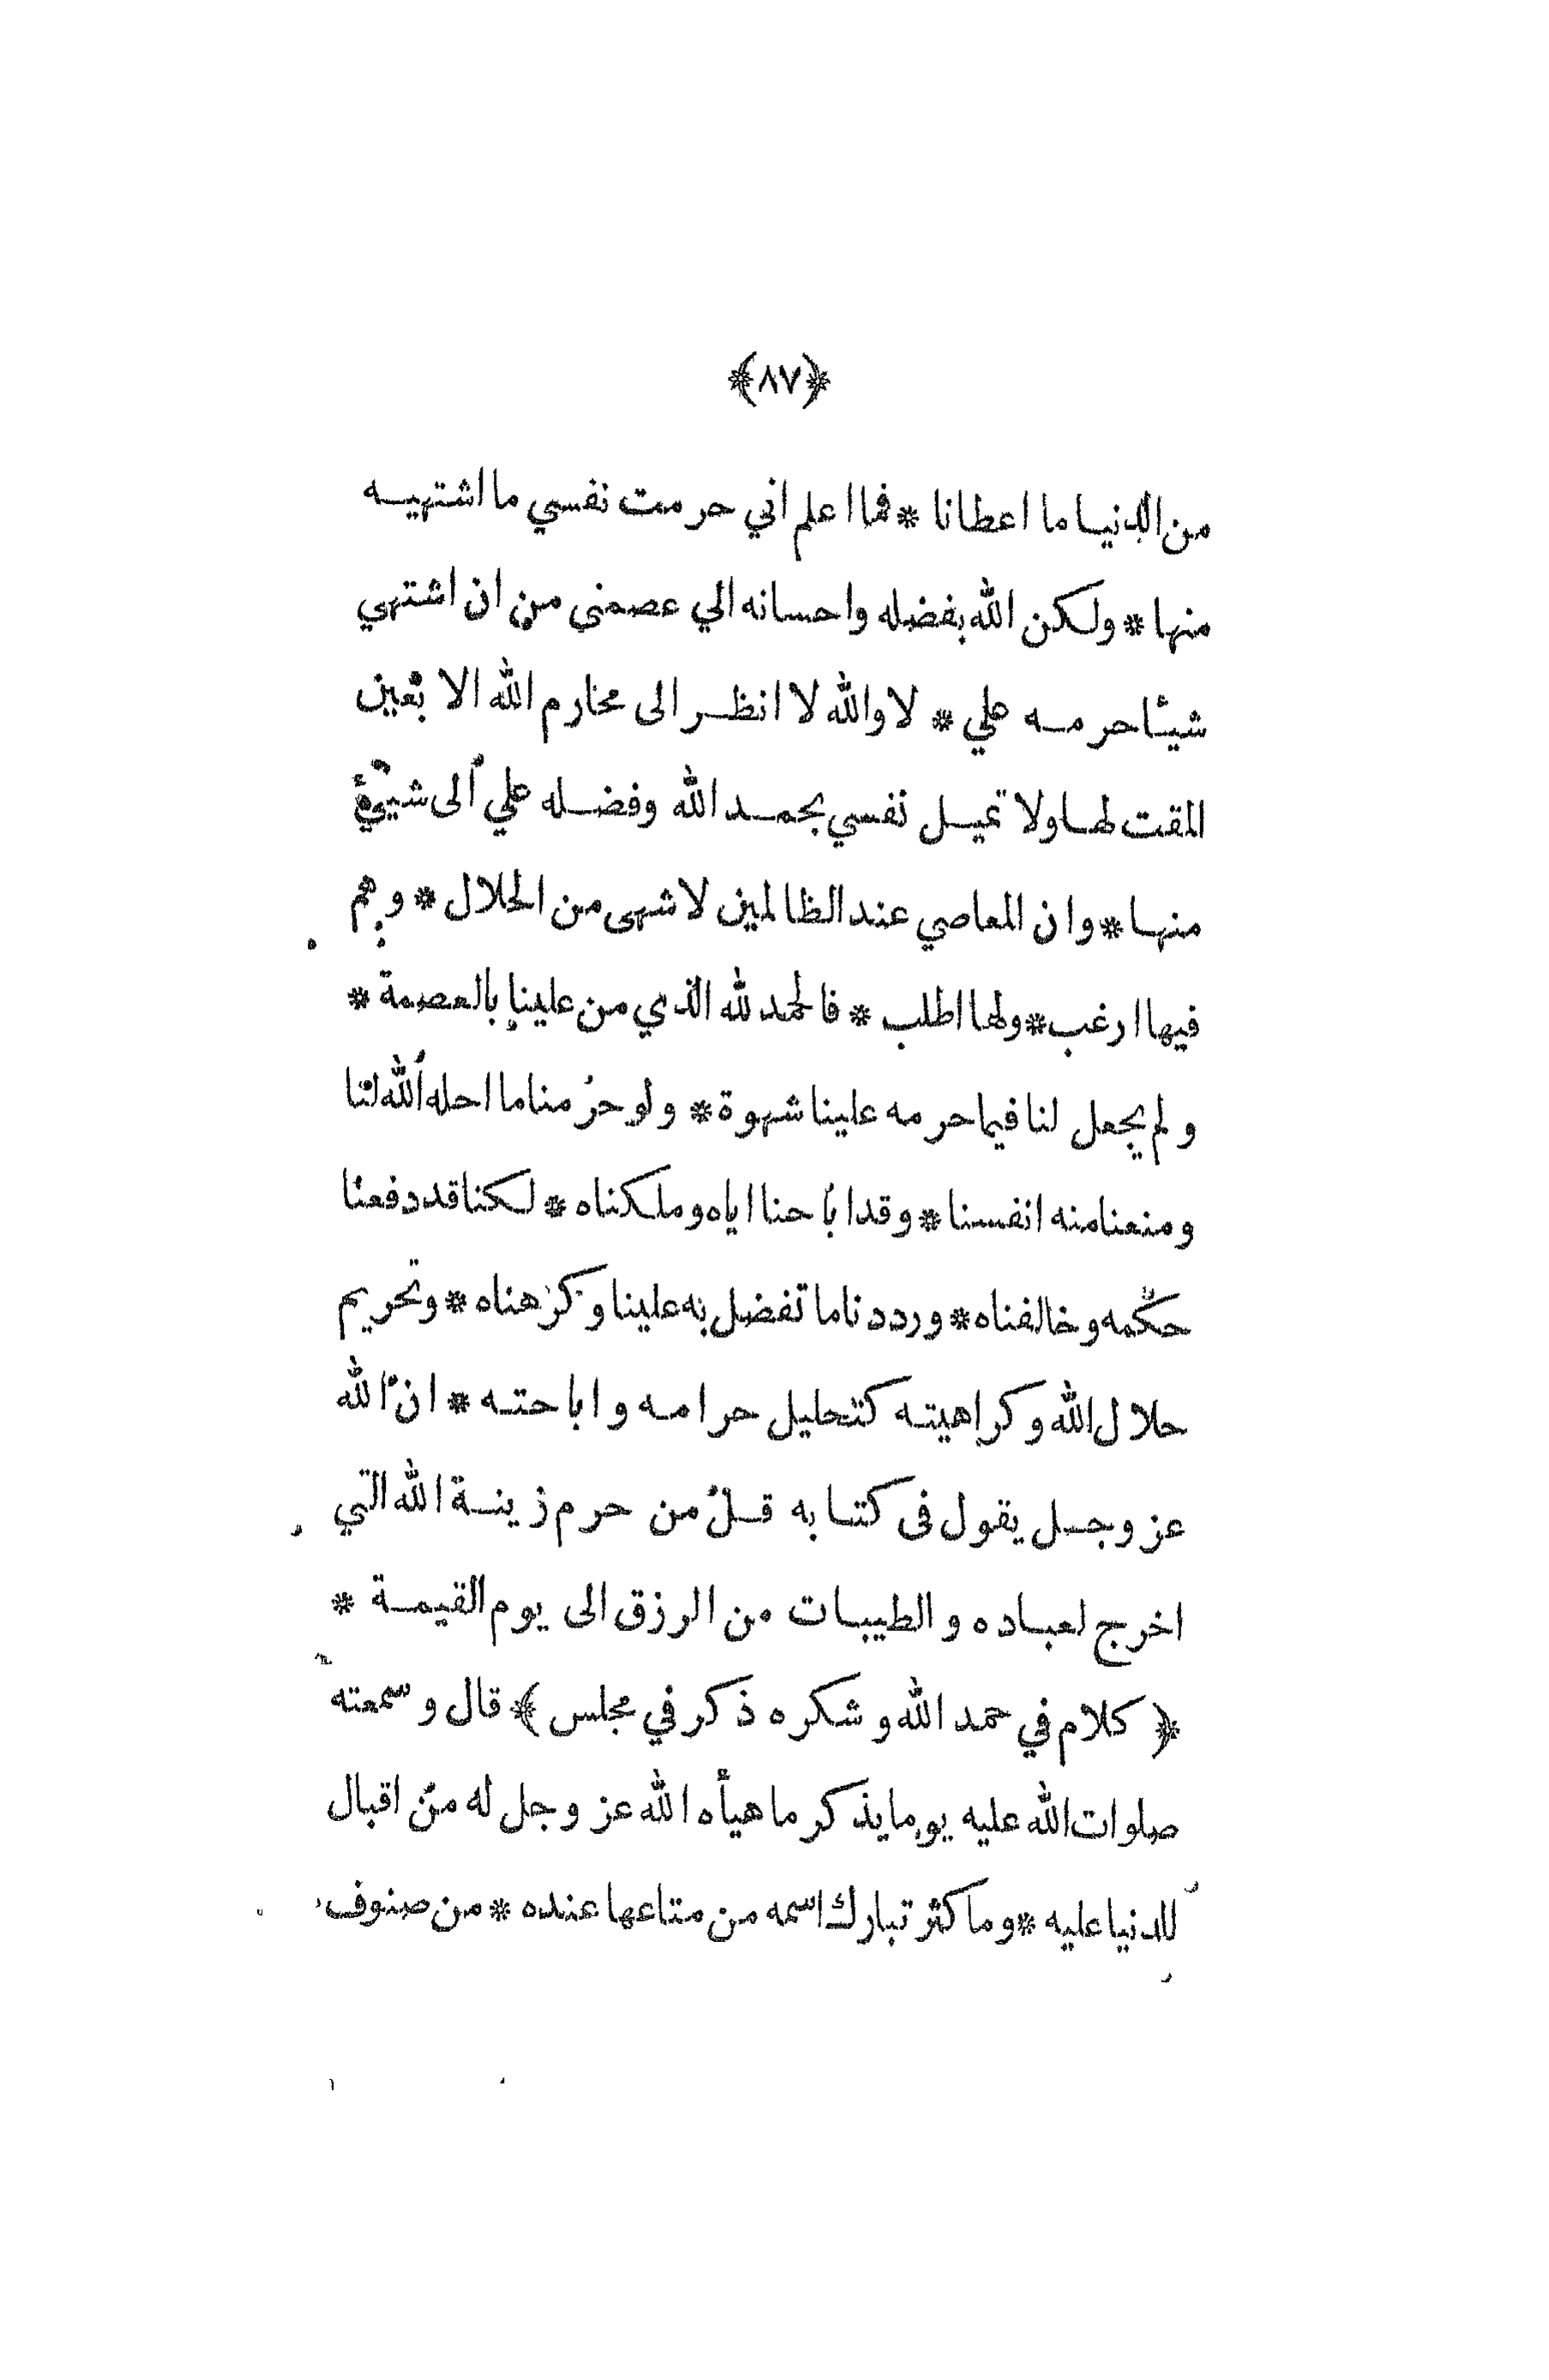 ﴿٨٧﴾
من الدنيا ما اعطانا * فما اعلم اني حرمت نفسي ما اشتهيه
منها * ولكن الله بفضله واحسانه الي عصمني من ان اشتهي
شيئا حرمه علي * لا والله لا انظر الى محارم الله الا بعين
المقت لها ولا تميل نفسي بحمد الله وفضله علي الى شيئ
منها * وان المعاصي عند الظالمين لاشهى من الحلال * وهم
فيها ارغب * ولها اطلب * فالحمد لله الذي من علينا بالعصمة *
ولم يجعل لنا فيما حرمه علينا شهوة * ولو حرمنا ما احله الله لنا
ومنعنا منه انفسنا * وقد اباحنا اياه وملكناه * لكنا قد دفعنا
حكمه وخالفناه * ورددنا ما تفضل به علينا وكرهناه * وتحريم
حلال الله وكراهيته كتحليل حرامه واباحته * ان الله
عز وجل يقول فى كتابه قل من حرم زينة الله التي
اخرج لعباده والطيبات من الرزق الى يوم القيمة *
﴿ كلام في حمد الله وشكره ذكر في مجلس ﴾ قال وسمعته
صلوات الله عليه يوما يذكر ما هيأه الله عز وجل له من اقبال
للدنيا عليه * وما كثر تبارك اسمه من متاعها عنده * من صنوف